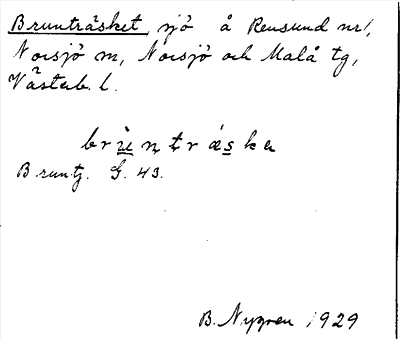 Brunträsket, sjö å Rensund nr 1,
Norsjö sn, Norsjö och Malå tg,
Västerb. l.
brùntræska
Bruntj. G. 43.
B. Nygren 1929